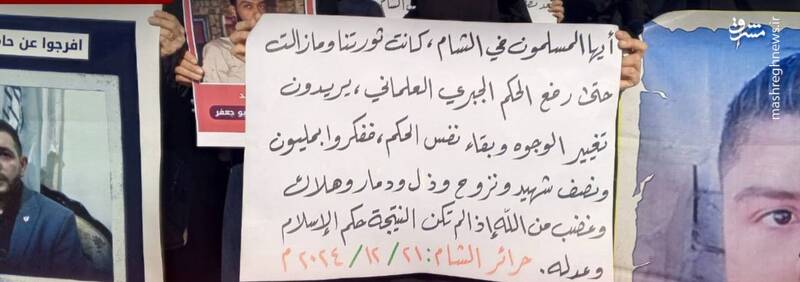 أيها المسلمون في الشام، كانت ثورتنا وما زالت
حتى رفع الحكم الجبري العلماني، يريدون
تغيير الوجوه وبقاء نفس الحكم، ففكروا بمليون
ونصف شهيد ونزوح وذل ودمار وهلاك
وغضب من الله إذ لم تكن النتيجة حكم الإسلام
وعدله. حرائر الشام: ٢١/ ١٢/ ٢٠٢٤ م
افرجوا عن
بو جعفر
مشرق
mashreghnews.ir